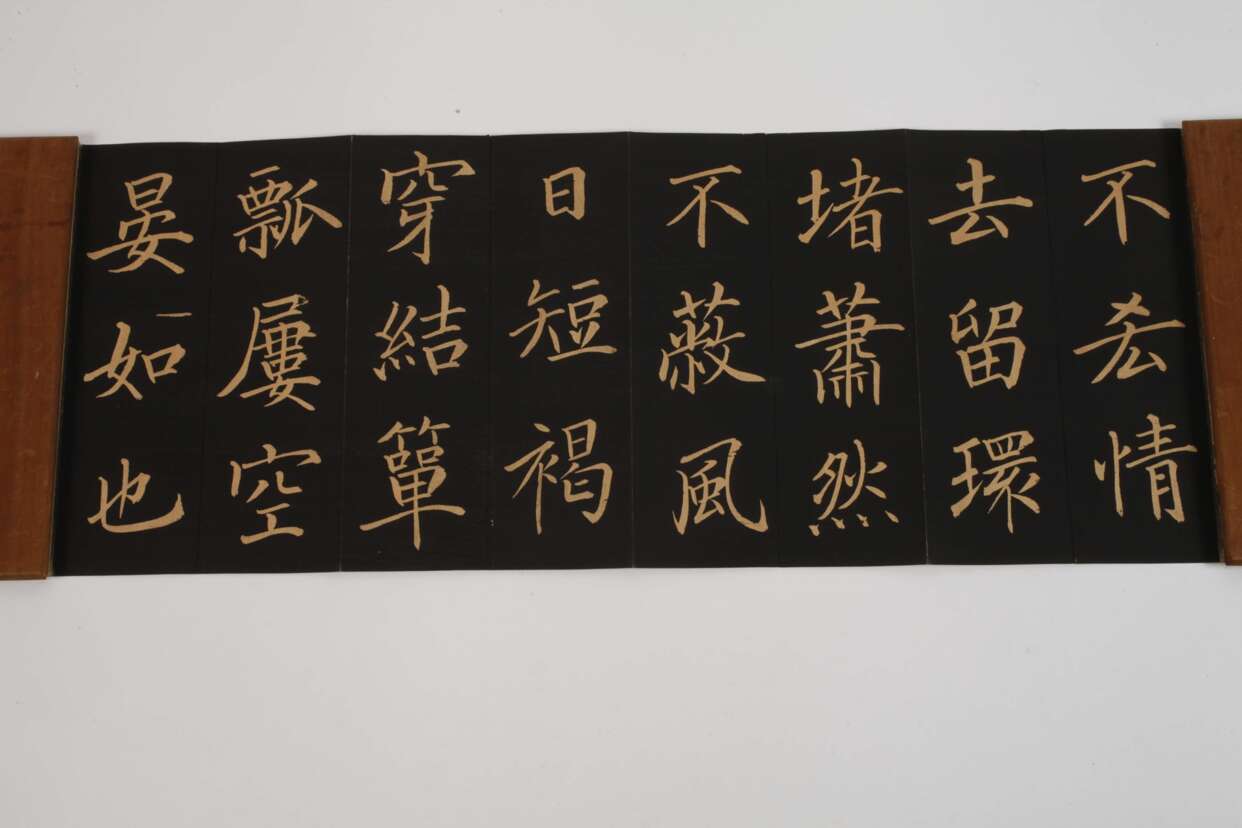 不吝情
去留環
堵蕭然
不蔽風
日短褐
穿結簞
瓢屢空
晏如也